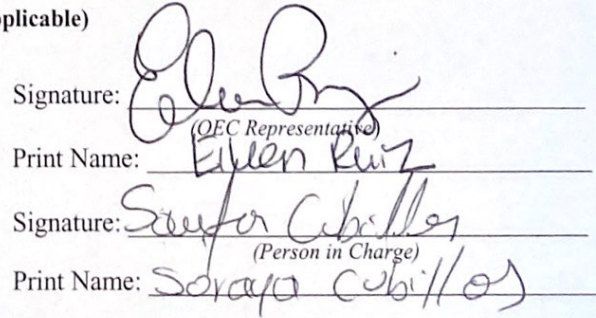 plicable)
Signature:
(OEC Representative)
Print Name: Eileen Ruiz
Signature: Soraya Cubillos
(Person in Charge)
Print Name: Soraya Cubillos